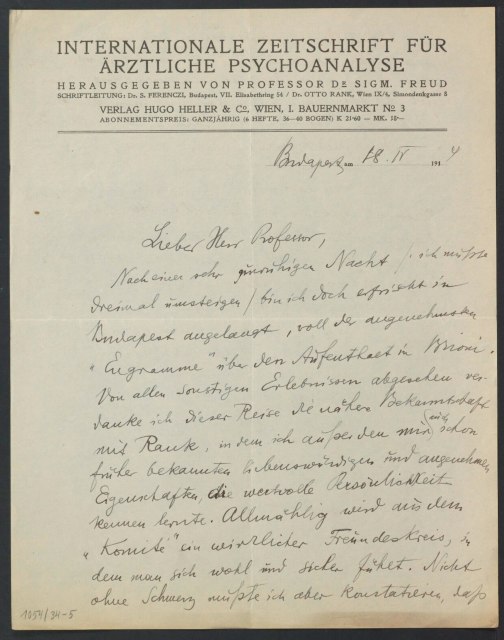 INTERNATIONALE ZEITSCHRIFT FÜR
ÄRZTLICHE PSYCHOANALYSE
HERAUSGEGEBEN VON PROFESSOR Dr. SIGM. FREUD
SCHRIFTLEITUNG: Dr. S. FERENCZI, Budapest, VII. Elisabethring 54 / Dr. OTTO RANK, Wien IX/4, Simondenkgasse 8
VERLAG HUGO HELLER & Co., WIEN, I. BAUERNMARKT No 3
ABONNEMENTSPREIS: GANZJÄHRIG (6 HEFTE, 36—40 BOGEN) K 21·60 = MK. 18·—
Budapest, am 18. IV 1914
Lieber Herr Professor,
Nach einer sehr unruhigen Nacht /: ich mußte
dreimal umsteigen / bin ich doch erfrischt in
Budapest angelangt, voll der angenehmsten
"Engramme" über den Aufenthalt in Brioni.
Von allen sonstigen Erlebnissen abgesehen ver-
danke ich dieser Reise die nähere Bekanntschaft
mit Rank, in dem ich außer den mir schon
früher bekannten liebenswürdigen und angenehmen
Eigenschaften, die wertvolle Persönlichkeit
kennen lernte. Allmählig wird aus dem
"Komité" ein wirklicher Freundeskreis, in
dem man sich wohl und sicher fühlt. Nicht
ohne Schmerz mußte ich aber konstatieren, daß
1054/34-5